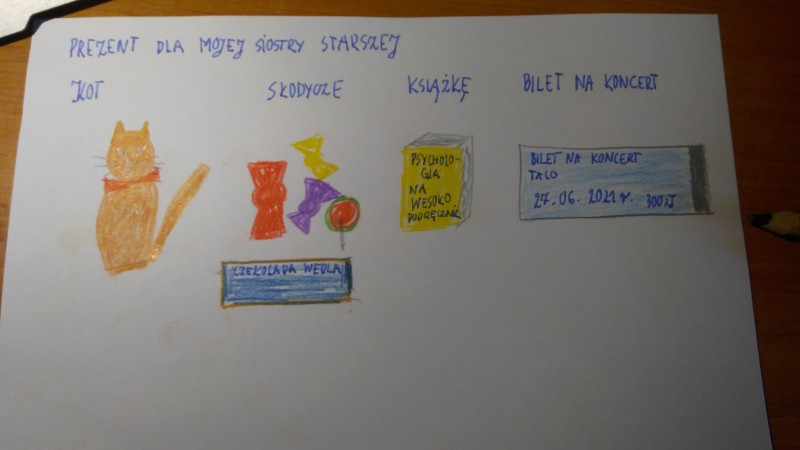 PREZENT DLA MOJEJ SIOSTRY STARSZEJ
KOT
SŁODYCZE
KSIĄŻKĘ
BILET NA KONCERT
PSYCHOLO-
GIA
NA
WESOŁO
PODRĘCZNIK
BILET NA KONCERT
TACO
27.06.2021r. 300zł
CZEKOLADA WEDLA